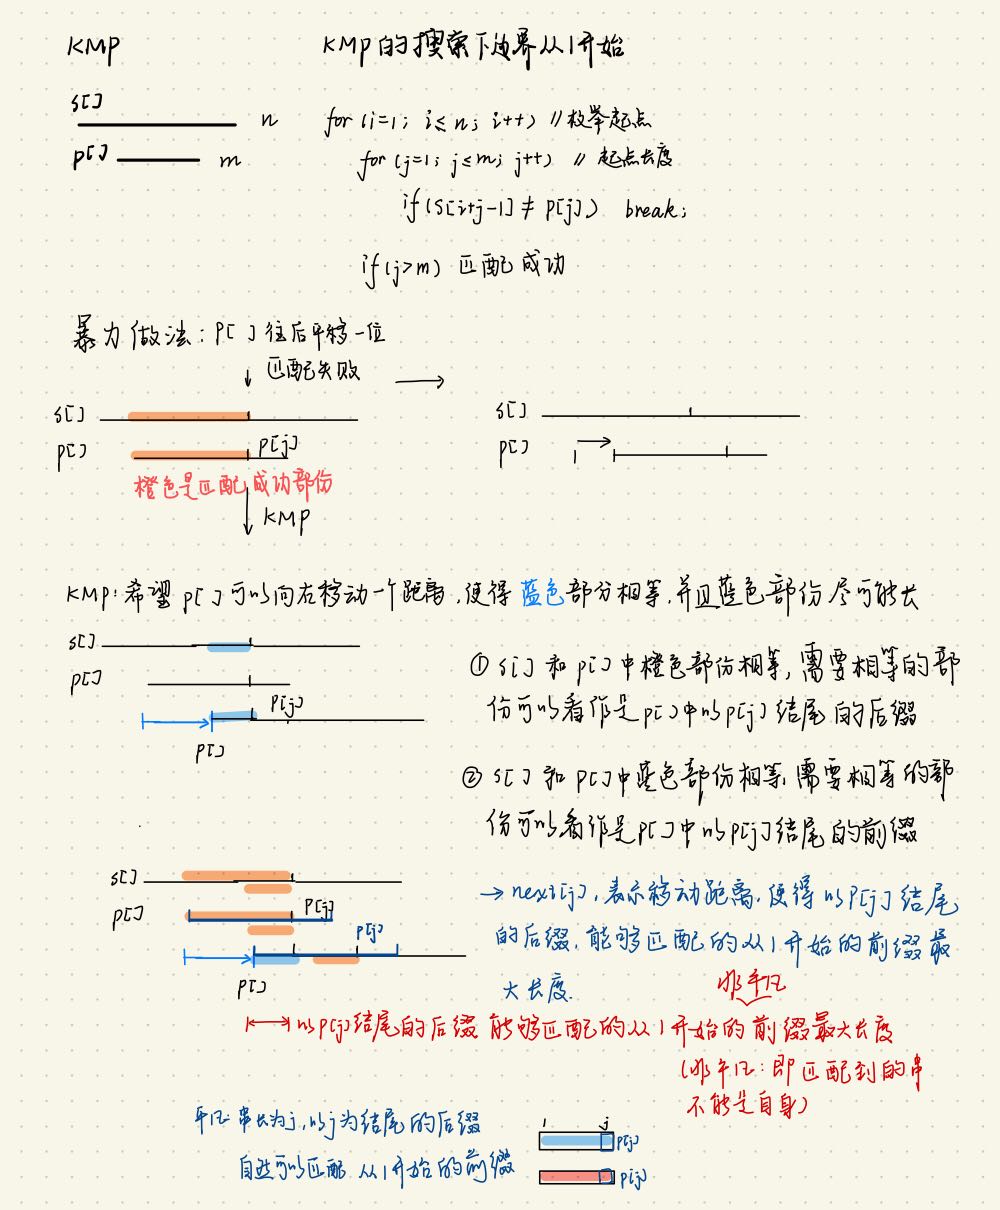 KMP
KMP的搜索下边界从1开始
S[]
n
P[]
m
for (i=1; i≤n; i++) //枚举起点
for (j=1; j≤m; j++) // 起点长度
if (S[i+j-1] ≠ P[j]) break;
if (j>m) 匹配成功
暴力做法: P[]往后平移一位
匹配失败
S[]
P[]
P[j]
橙色是匹配成功部份
KMP
S[]
P[]
KMP: 希望 P[]可以向右移动一个距离,使得蓝色部分相等,并且蓝色部份尽可能长
S[]
P[]
P[j]
P[]
① S[] 和 P[]中橙色部份相等, 需要相等的部
份可以看作是P[]中以P[j]结尾的后缀
② S[] 和 P[]中蓝色部份相等, 需要相等的部
份可以看作是P[]中以P[j]结尾的前缀
S[]
P[]
P[j]
P[j]
P[]
→ next[j], 表示移动距离, 使得以P[j]结尾
的后缀, 能够匹配的从1开始的前缀最
大长度.
非平凡
以P[j]结尾的后缀 能够匹配的从1开始的前缀最大长度
(非平凡: 即匹配到的串
不能是自身)
平凡: 串长为j, 以j为结尾的后缀
自然可以匹配 从1开始的前缀
1 j
P[j]
P[j]